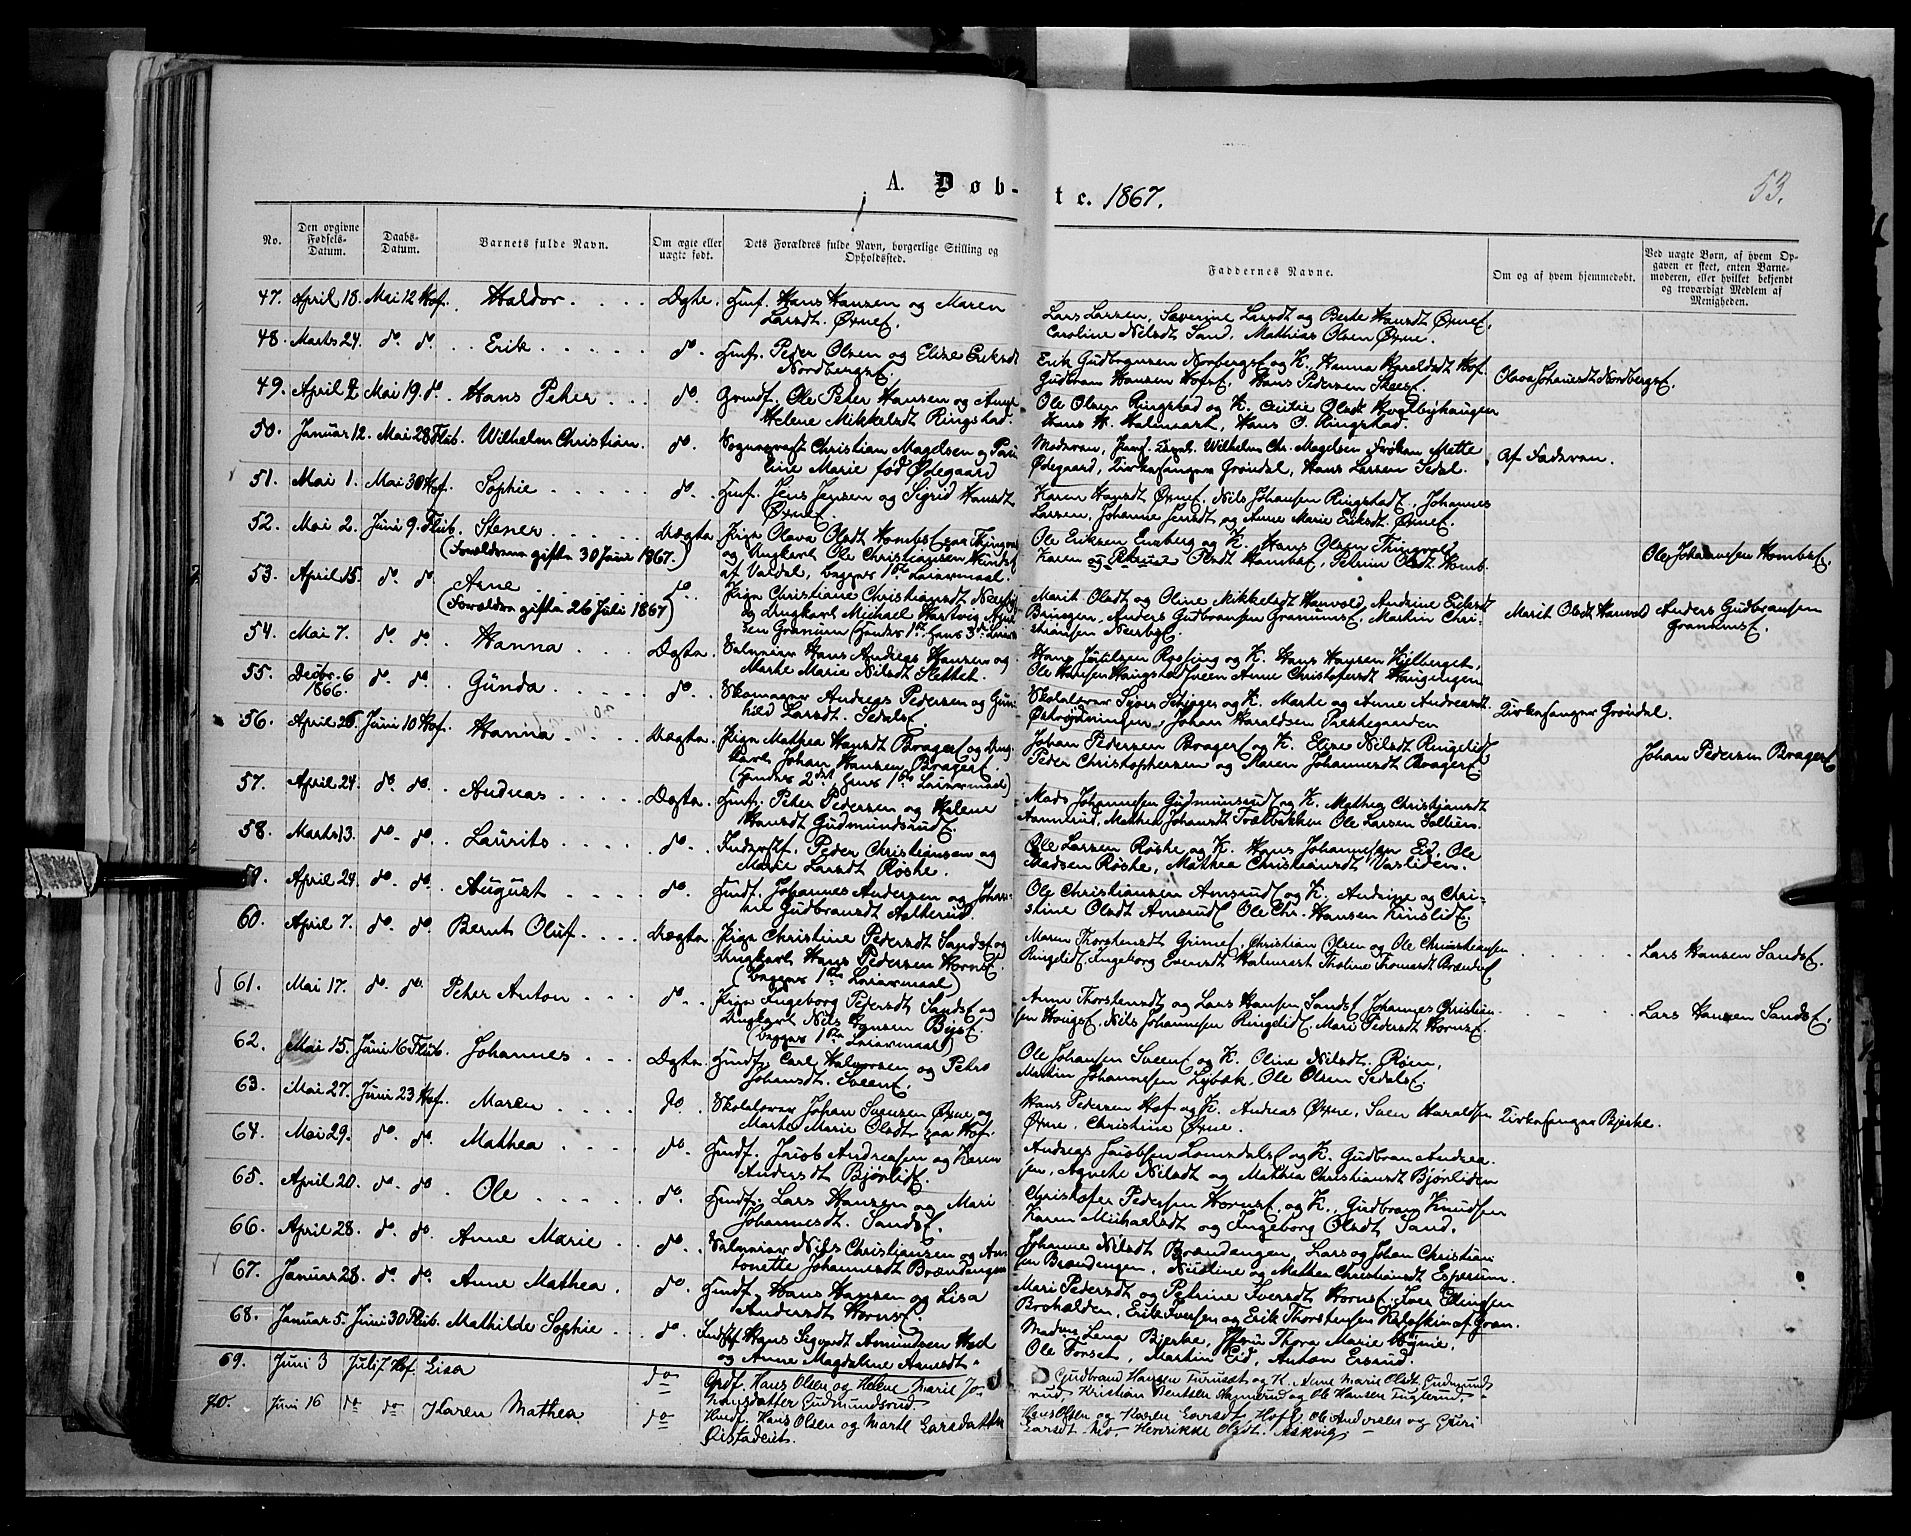 A. Døb- te. 1867.
53.
No.
Den opgivne Fødsels-Datum.
Daabs-Datum.
Barnets fulde Navn.
Om ægte eller uægte født.
Dets Forældres fulde Navn, borgerlige Stilling og Opholdssted.
Faddernes Navne.
Om og af hvem hjemmedøbt.
Ved uægte Børn, af hvem Opgaven er skeet, enten Barnemoderen, eller hvilket bekjendt og troværdigt Medlem af Menigheden.
47. April 18. Mai 12 Hof. Haldor. Ægte. Huusf. Hans Hansen og Maren
Larsdt. Ørnef.
Lars Larsen, Severine Larsdt og Berte Hansdt Ørnef.
Caroline Nilsdt Sand, Mathias Olsen Ørne.
48. Marts 24. do. do. Erik do. Huusf. Peder Olsen og Eline Eriksdt
Nordbergsf.
Erik Gudbransen Norbergsf og K. Hanna Haraldsdt Hof.
Gudbram Hansen Hofsf. Hans Pedersen
Olava Johansdt Nordbergsf.
49. April 4 Mai 19. do. Hans Peter do. Ole Peter Hansen og Anne
Helene Mikkelsdt Ringstad.
Ole Olsen Ringstad og K. Cicilie Olsdt Hvalbyhaugen
Hans H. Halmrast, Hans O. Ringstad.
50. Januar 12. Mai 28 Flub. Wilhelm Christian. do. Sognepræst Christian Magelsen og Pau-
line Marie fød Ødegaard
Moderen, Wilhelm Chr. Magelsen Frøken Mette
Ødegaard, Kirkesanger Grøndal, Hans Larsen Sedal.
Af Faderen.
51. Mai 1. Mai 30 Hof. Sophie do. Huusf. Jens Jensen og Sigrid Hansdt
Ørnef.
Karen Hansdt Ørnef. Nils Johansen Ringstad, Johannes
Larsen, Johanne Jensdt og Anne Marie Eriksdt Ørnef.
52. Mai 2. Juni 9. Flub. Stener Uægte Pige Olava Olsdt Hombsf paa Thingvol
(Forældrene gifte 30 Juni 1867.)
og Ungkarl Ole Christiansen
af Vardal, begges 1ste Leiermaal.
Ole Eriksen Enzberg og K. Hans Olsen Thingvold
Karen og Olsdt Hombsf, Petrine Olsdt Homb.
Ole Johannesen Hombsf.
53. April 15. do. do. Arne do. Pige Christiane Christiansdt Neerby
(Forældre gifte 26 Juli 1867)
og Ungkarl Michael Hartvig
sen Granum (hendes 1ste hans 3die
Marit Olsdt og Oline Mikkelsdt Hanvold, Andrine Eriksdt
Bringen, Anders Gudbransen Granumsf, Martin Chri-
stiansen Neerbysf.
Marit Olsdt Hanvold
Anders Gudbransen
Granumsf.
54. Mai 7. do. do. Hanna Ægte. Hans Andreas Hansen og
Marte Marie Nilsdt Slettet.
Hans og K. Hans Hansen Kjelberget,
Ole Hansen Haugstadsveen Anne Christofersdt
55. Decbr. 6
1866. do. do. Gunda do. Skomager Andreas Pedersen og Gun-
hild Larsdt. Sedalsf.
Skolelærer og K. Marte og Anne Andreasdt
Johan Haraldsen
Kirkesanger Grøndal.
56. April 26. Juni 10 Hof. Hanna Uægte. Pige Mathea Hansdt Bragersf og Ung-
karl Johan Hansen Bragersf.
(hendes 2det hans 1ste Leiermaal)
Johan Pedersen Bragersf og K. Eline Nilsdt Ringelidsf
Peder Christophersen og Maren Johannesdt Bragersf
Johan Pedersen Bragersf
57. April 24. do. do. Andreas Ægte. Huusf. Peter Pedersen og Helene
Hansdt Gudmundsrudsf.
Mads Johannesen Gudmunsrudsf og K. Mathea Christiansdt
Mathea Johansdt Ole Larsen
58. Marts 13. do. do. Laurits do. Inderstf. Peder Christiansen og
Marie Larsdt Røste.
Ole Larsen Røste og K. Hans Johannesen Eid, Ole
Madsen Røste, Mathea Christiansdt Vasliden.
59. April 24. do. do. August do. Huusf. Johannes Andersen og Johan-
ne Gudbransdt
Ole Christiansen Amsrudsf og K. Andrine og Chri-
stine Olsdt Amsrudsf Ole Chr. Hansen Kinslidsf.
60. April 7. do. do. Bernt Oluf Uægte. Pige Christine Pedersdt Sandsf og
Ungkarl Hans Pedersen Hornsf.
(begges 1ste Leiermaal)
Maren Thorstensdt Christian Olsen og Ole Christiansen
Ringelidsf, Ingeborg Evensdt Halmrast Tholine Thomasdt
Lars Hansen Sandsf.
61. Mai 17. do. do. Peter Anton do. Pige Ingeborg Pedersdt Sandsf og
Ungkarl Nils Hansen Bysf.
(begges 1ste Leiermaal)
Anne Thorstensdt og Lars Hansen Sandsf Johannes Christian-
sen Haugsf. Nils Johannesen Ringelidsf. Mari Pedersdt Hornsf.
Lars Hansen Sandsf.
62. Mai 15. Juni 16 Flub. Johannes Ægte. Huusf. Carl Halvorsen og Petro
Johansdt. Sveensf.
Ole Johansen Sveensf og K. Oline Nilsdt. Røen,
Martin Johannesen Lybæk, Ole Olsen Sedalsf.
63. Mai 27. Juni 23 Hof. Maren do. Skolelærer Johan Svensen Ørne og
Marte Marie Olsdt paa Hof.
Hans Pedersen Hof og K. Andreas Ørne, Sven Haraldsen
Ørne, Christine Ørne.
Kirkesanger Bjerke.
64. Mai 29. do. do. Mathea do. Huusf. Jacob Andreasen og Karen
Andersdt Bjørlidsf.
Andreas Jacobsen Lomsdalsf og K. Gudbran Andrea-
sen, Agnete Nilsdt og Mathea Christiansdt Bjørliden
65. April 20. do. do. Ole do. Huusf. Lars Hansen og Mari
Johannesdt. Sandsf.
Christofer Pedersen Hornsf. og K. Gudbran Knudsen
Karen Michaelsdt og Ingeborg Olsdt Sand.
66. April 28. do. do. Anne Marie do. Nils Christiansen og An-
tonette Johannesdt Brændengen
Johanne Nilsdt Brændengen, Lars og Johan Christian-
sen Brændengen, og Mathea Christiansdt Esperum.
67. Januar 28. do. do. Anne Mathea do. Huusf. Hans Hansen og Lisa
Andersdt Hornsf.
Mari Pedersdt og Petrine Iversdt Hornsf, Iver Ellingsen
Brohalden, Erik Iversen og Erik Thorstensen af Gran.
68. Januar 5. Juni 30 Flub. Mathilde Sophie do. Indstf. Hans Segvardt Asmundsen Hed
og Anne Magdalene Asmsdt
Madme Lena Bjerke, Thora Marie
Ole Forset, Martin Eid, Anton Ersrud.
69. Juni 3 Juli 7 Hof. Lisa do Grdf. Hans Olsen og Helene Marie Jo-
hansdatter Gudmundsrud.
Gudbrand Hansen og K. Anne Marie Olsdt Gudmunds
rud, Kristian Berntsen og Ole Hansen Fuglerud.
70. Juni 16 do do Karen Mathea do Husf. Hans Olsen og Marte Larsdatter
Øistadeiet.
Hans Olsen og Karen Larsdt Hof, Ole Andersen og Guri
Larsdt. Henrikke Olsdt. Askvig